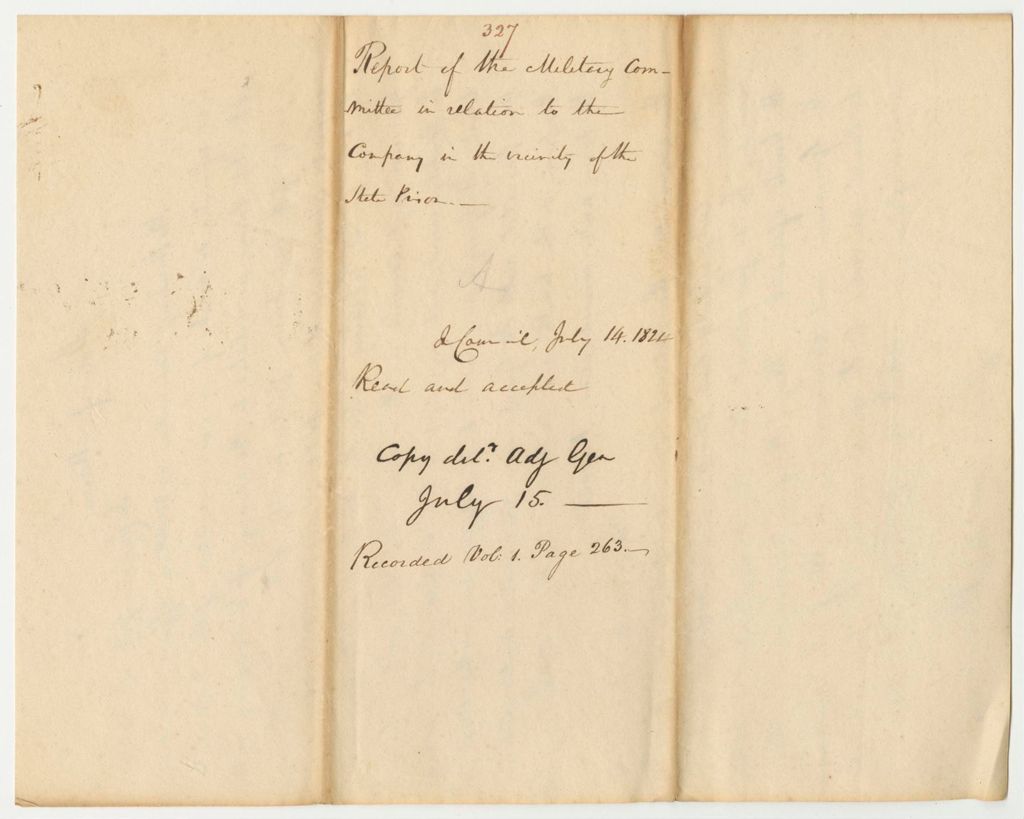 327
Report of the Military Com-
mittee in relation to the
Company in the vicinity of the
State Prison. —
A
In Council, July 14. 1824
Read and accepted
Copy del.d Adj Gen
July 15. —
Recorded Vol: 1. Page 263. —